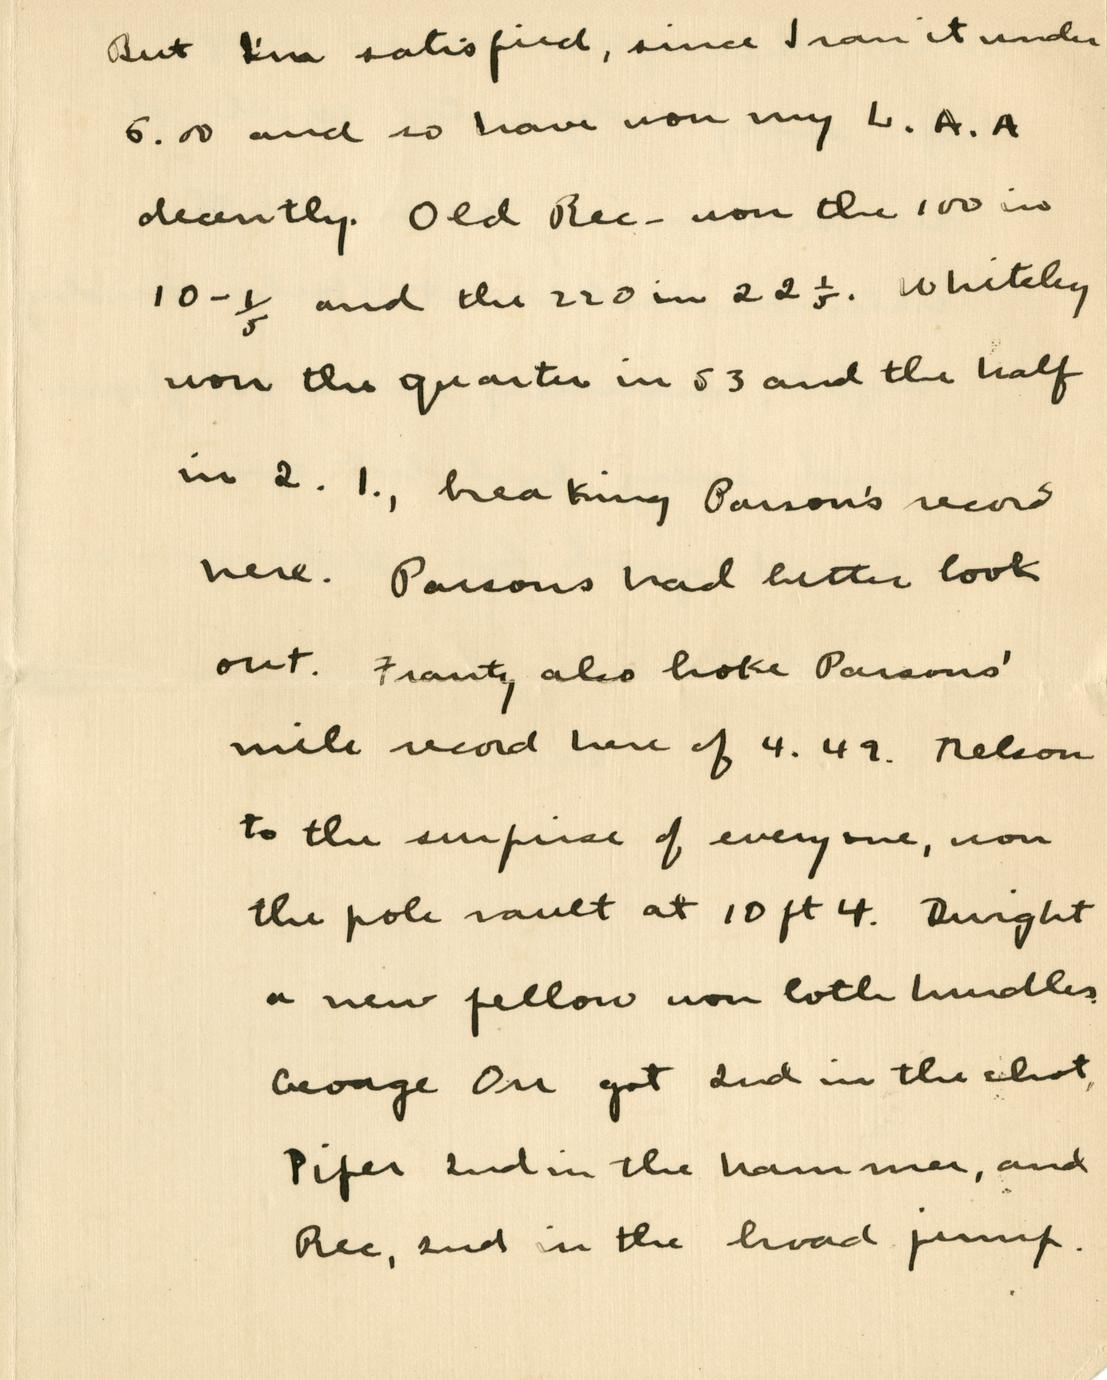 But I'm satisfied, since I ran it under
5.00 and so have won my L. A. A
decently. Old Rec- won the 100 in
10-1/5 and the 220 in 22 1/5. Whiteley
won the quarter in 53 and the half
in 2. 1., breaking Parson's record
here. Parsons had better look
out. Franty also broke Parsons'
mile record here of 4. 49. Nelson
to the surprise of everyone, won
the pole vault at 10 ft 4. Dwight
a new fellow won both hurdles.
George Orr got 2nd in the shot,
Pifer 2nd in the hammer, and
Rec, 2nd in the broad jump.